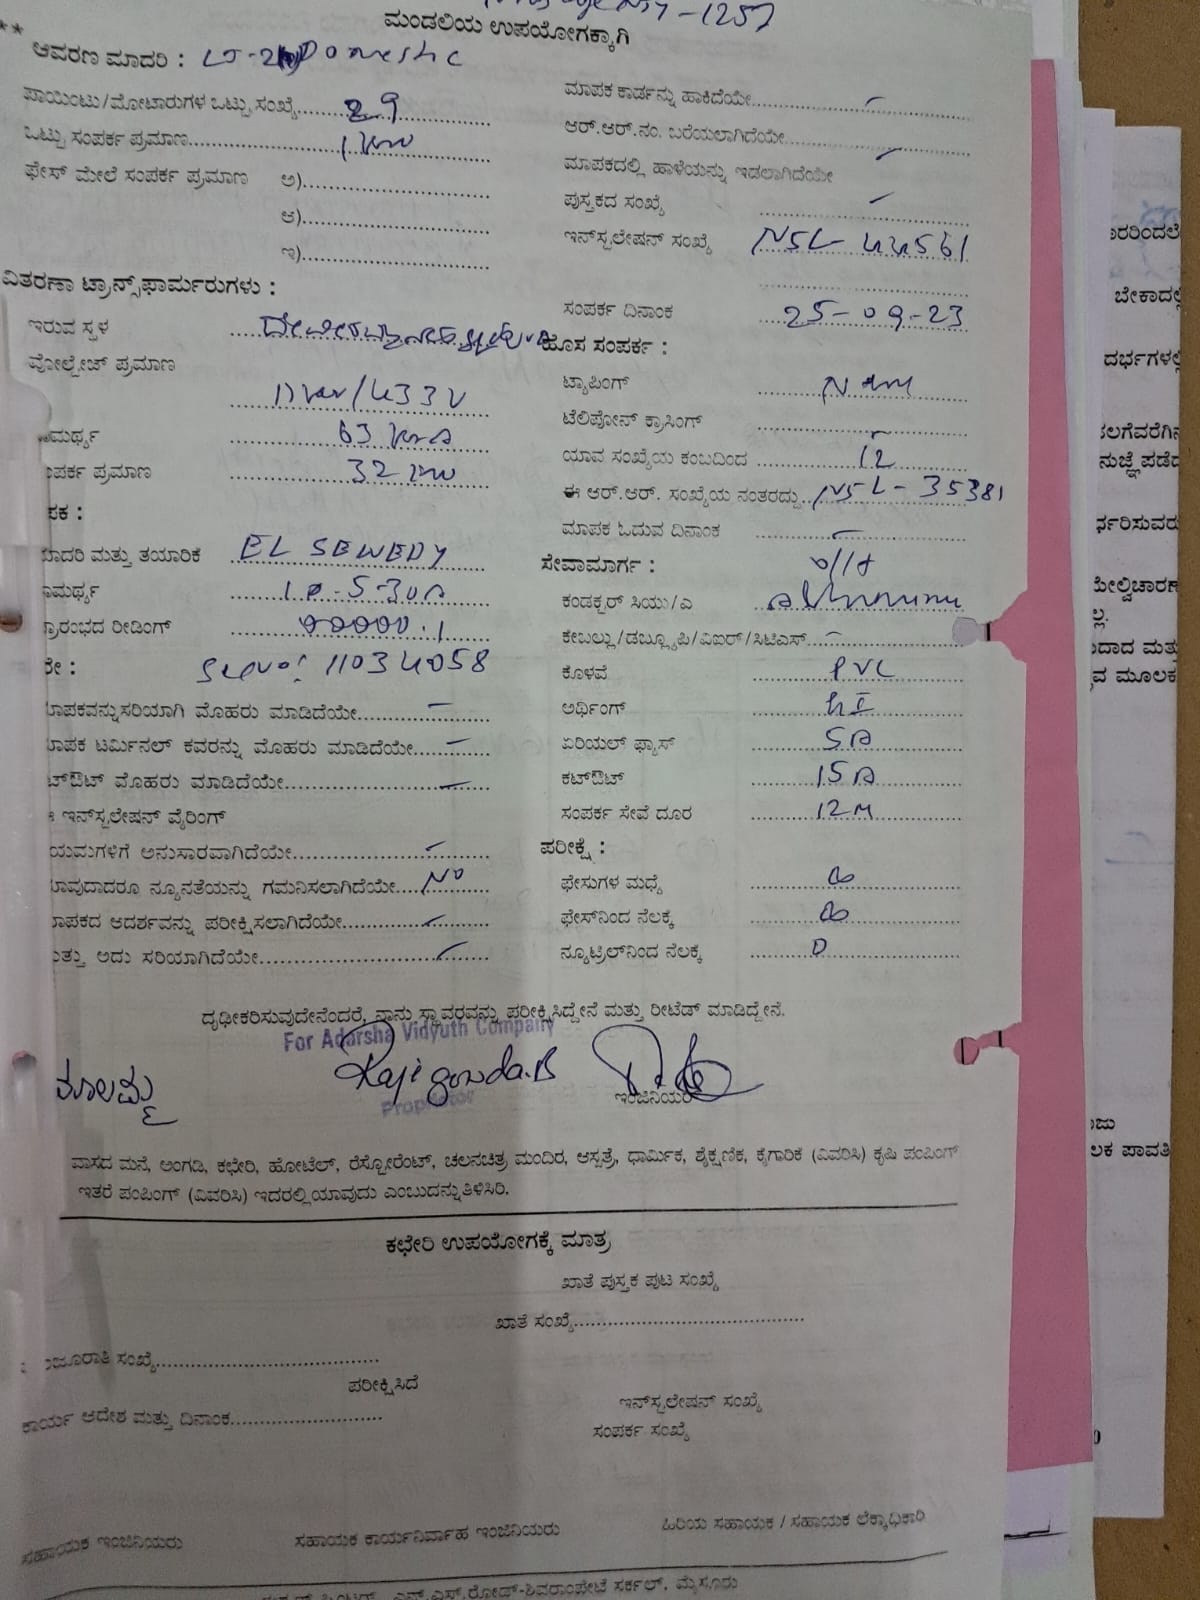 ಮಂಡಲಿಯ ಉಪಯೋಗಕ್ಕಾಗಿ
** ಆವರಣ ಮಾದರಿ : Domestic
ಪಾಯಿಂಟು/ಮೋಟಾರುಗಳ ಒಟ್ಟು ಸಂಖ್ಯೆ 29
ಒಟ್ಟು ಸಂಪರ್ಕ ಪ್ರಮಾಣ 1 kw
ಫೇಸ್ ಮೇಲೆ ಸಂಪರ್ಕ ಪ್ರಮಾಣ ಅ)
ಆ)
ಇ)
ವಿತರಣಾ ಟ್ರಾನ್ಸ್‌ಫಾರ್ಮರುಗಳು :
ಇರುವ ಸ್ಥಳ
ವೋಲ್ಟೇಜ್ ಪ್ರಮಾಣ
11kv/433V
ಾಮರ್ಥ್ಯ 63 kva
ಂಪರ್ಕ ಪ್ರಮಾಣ 32 kw
ಪಕ :
ಮಾದರಿ ಮತ್ತು ತಯಾರಿಕೆ EL SEWEDY
ಾಮರ್ಥ್ಯ 1Ø-5-30A
್ರಾರಂಭದ ರೀಡಿಂಗ್ 00000.1
ರೇ : Slno: 11034058
ಾಪಕವನ್ನು ಸರಿಯಾಗಿ ಮೊಹರು ಮಾಡಿದೆಯೇ
ಾಪಕ ಟರ್ಮಿನಲ್ ಕವರನ್ನು ಮೊಹರು ಮಾಡಿದೆಯೇ
ಟ್‌ಔಟ್ ಮೊಹರು ಮಾಡಿದೆಯೇ
ಇನ್‌ಸ್ಟಲೇಷನ್ ವೈರಿಂಗ್
ಯಮಗಳಿಗೆ ಅನುಸಾರವಾಗಿದೆಯೇ
ಾವುದಾದರೂ ನ್ಯೂನತೆಯನ್ನು ಗಮನಿಸಲಾಗಿದೆಯೇ No
ಾಪಕದ ಆದರ್ಶವನ್ನು ಪರೀಕ್ಷಿಸಲಾಗಿದೆಯೇ
ುತ್ತು ಅದು ಸರಿಯಾಗಿದೆಯೇ
ಮಾಪಕ ಕಾರ್ಡನ್ನು ಹಾಕಿದೆಯೇ
ಆರ್.ಆರ್.ನಂ. ಬರೆಯಲಾಗಿದೆಯೇ
ಮಾಪಕದಲ್ಲಿ ಹಾಳೆಯನ್ನು ಇಡಲಾಗಿದೆಯೇ
ಪುಸ್ತಕದ ಸಂಖ್ಯೆ
ಇನ್‌ಸ್ಟಲೇಷನ್ ಸಂಖ್ಯೆ NSL-44561
ಸಂಪರ್ಕ ದಿನಾಂಕ 25-09-23
ಹೊಸ ಸಂಪರ್ಕ :
ಟ್ಯಾಪಿಂಗ್
ಟೆಲಿಪೋನ್ ಕ್ರಾಸಿಂಗ್
ಯಾವ ಸಂಖ್ಯೆಯ ಕಂಬದಿಂದ 12
ಈ ಆರ್.ಆರ್. ಸಂಖ್ಯೆಯ ನಂತರದ್ದು NSL-35381
ಮಾಪಕ ಓದುವ ದಿನಾಂಕ
ಸೇವಾಮಾರ್ಗ : o/H
ಕಂಡಕ್ಟರ್ ಸಿಯು/ಎ
ಕೇಬಲ್ಲು/ಡಬ್ಲ್ಯೂಪಿ/ವಿಐರ್/ಸಿಟಿಎಸ್
ಕೊಳವೆ PVC
ಅರ್ಥಿಂಗ್ GI
ಏರಿಯಲ್ ಫ್ಯೂಸ್ 5A
ಕಟ್‌ಔಟ್ 15A
ಸಂಪರ್ಕ ಸೇವೆ ದೂರ 12M
ಪರೀಕ್ಷೆ :
ಫೇಸುಗಳ ಮಧ್ಯೆ ∞
ಫೇಸ್‌ನಿಂದ ನೆಲಕ್ಕೆ ∞
ನ್ಯೂಟ್ರಲ್‌ನಿಂದ ನೆಲಕ್ಕೆ 0
ದೃಢೀಕರಿಸುವುದೇನೆಂದರೆ, ನಾನು ಸ್ಥಾವರವನ್ನು ಪರೀಕ್ಷಿಸಿದ್ದೇನೆ ಮತ್ತು ರೀಟೆಡ್ ಮಾಡಿದ್ದೇನೆ.
For Adarsha Vidyuth Company
Rajegowda.B
Proprietor
ಇಂಜಿನಿಯರ್
ವಾಸದ ಮನೆ, ಅಂಗಡಿ, ಕಛೇರಿ, ಹೋಟೆಲ್, ರೆಸ್ಟೋರೆಂಟ್, ಚಲನಚಿತ್ರ ಮಂದಿರ, ಆಸ್ಪತ್ರೆ, ಧಾರ್ಮಿಕ, ಶೈಕ್ಷಣಿಕ, ಕೈಗಾರಿಕೆ (ವಿವರಿಸಿ) ಕೃಷಿ ಪಂಪಿಂಗ್
ಇತರೆ ಪಂಪಿಂಗ್ (ವಿವರಿಸಿ) ಇದರಲ್ಲಿ ಯಾವುದು ಎಂಬುದನ್ನು ತಿಳಿಸಿರಿ.
ಕಛೇರಿ ಉಪಯೋಗಕ್ಕೆ ಮಾತ್ರ
ಖಾತೆ ಪುಸ್ತಕ ಪುಟ ಸಂಖ್ಯೆ
ಖಾತೆ ಸಂಖ್ಯೆ
ಂಜೂರಾತಿ ಸಂಖ್ಯೆ
ಪರೀಕ್ಷಿಸಿದೆ
ಕಾರ್ಯ ಆದೇಶ ಮತ್ತು ದಿನಾಂಕ
ಇನ್‌ಸ್ಟಲೇಷನ್ ಸಂಖ್ಯೆ
ಸಂಪರ್ಕ ಸಂಖ್ಯೆ
ಸಹಾಯಕ ಇಂಜಿನಿಯರು ಸಹಾಯಕ ಕಾರ್ಯನಿರ್ವಾಹ ಇಂಜಿನಿಯರು ಹಿರಿಯ ಸಹಾಯಕ / ಸಹಾಯಕ ಲೆಕ್ಕಾಧಿಕಾರಿ
ಎನ್.ಎಸ್.ರೋಡ್-ಶಿವರಾಂಪೇಟೆ ಸರ್ಕಲ್, ಮೈಸೂರು